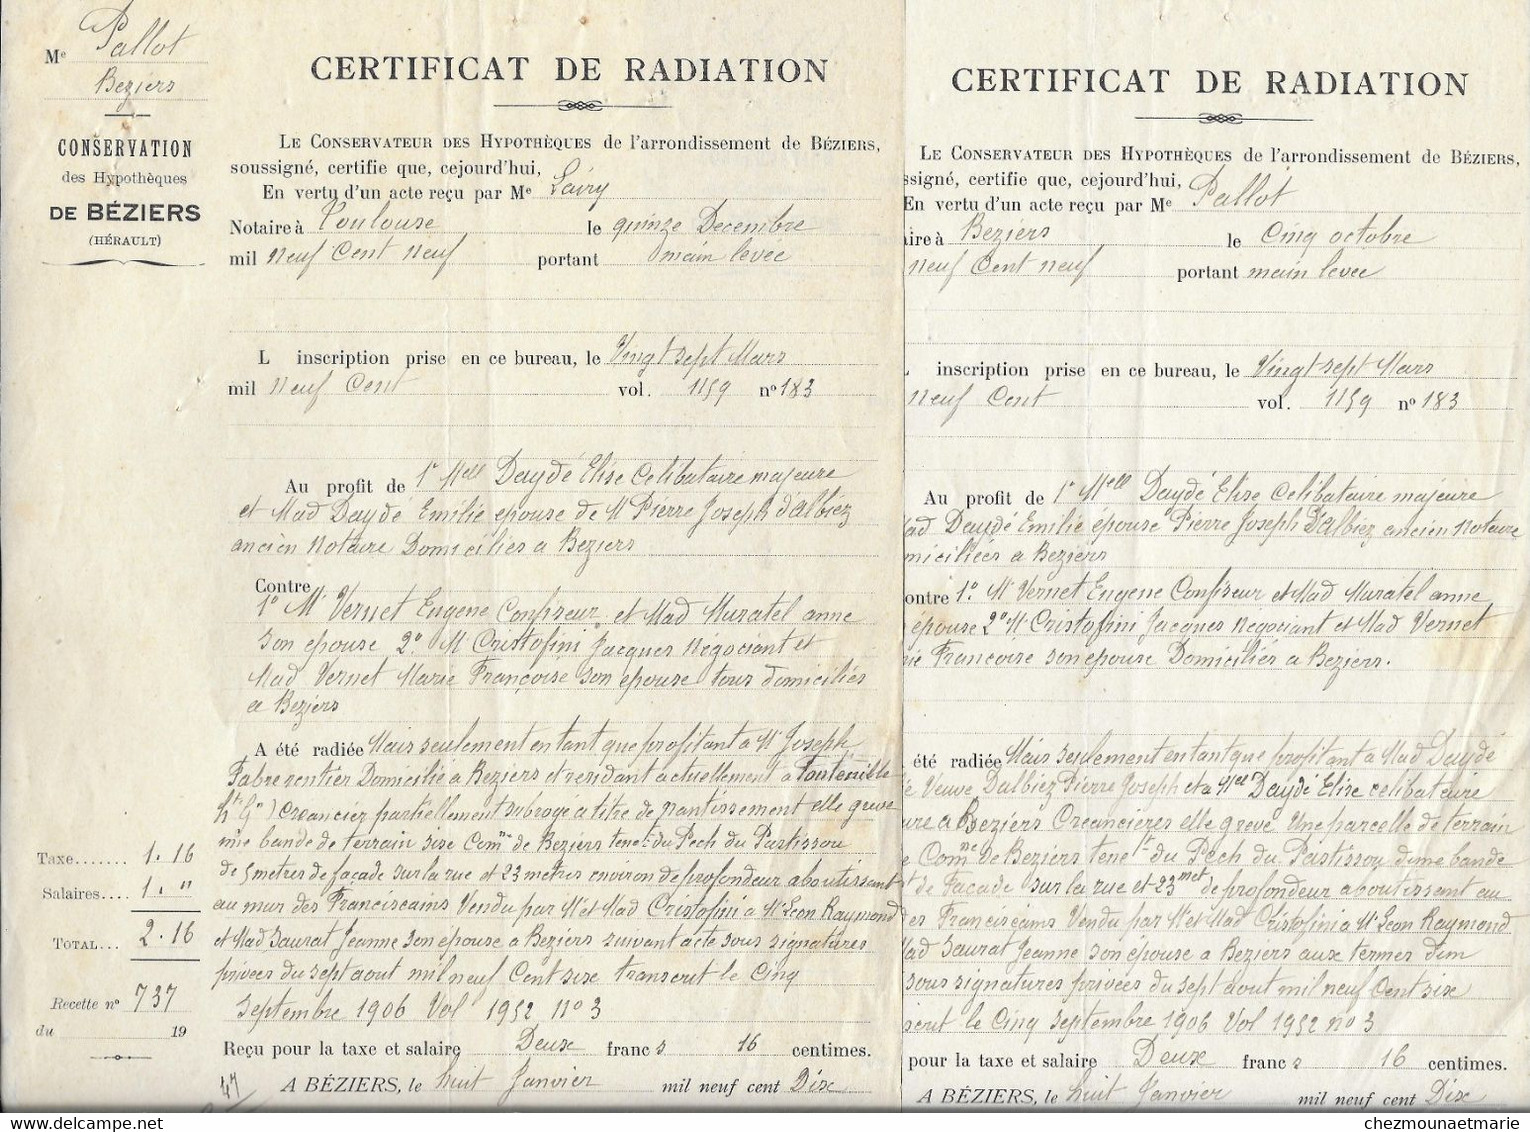 Me Pallot
Beziers
CONSERVATION
des Hypothèques
DE BÉZIERS
(HÉRAULT)
Taxe....... 1.16
Salaires.... 1. "
TOTAL... 2.16
Recette no 737
du 19
CERTIFICAT DE RADIATION
LE CONSERVATEUR DES HYPOTHÈQUES de l'arrondissement de BÉZIERS,
soussigné, certifie que, cejourd'hui,
En vertu d'un acte reçu par Me
Notaire à Toulouse le quinze Decembre
mil neuf Cent neuf portant main levée
L inscription prise en ce bureau, le Vingt sept Mars
mil neuf Cent vol. 1159 no 183
Au profit de 1o Mell Daydé Elise Celibataire majeure
et Mad Daydé Emilie epouse de M Pierre Joseph d'Albiez
ancien Notaire Domiciliés a Beziers
Contre
1o M. Vernet Eugene Confiseur et Mad Muratel anne
son epouse 2o M Cristofini Jacques Négociant et
Mad Vernet Marie Françoise son epouse tous domiciliés
a Beziers
A été radiée Mais seulement en tant que profitant a M Joseph
Fabre rentier Domicilié a Beziers et residant actuellement a Fontenille
(Hte Gne) Creancier partiellement subrogé a titre de nantissement elle greve
une bande de terrain sise Comne de Beziers tenet du Pech du Pastissou
de 5 metres de façade sur la rue et 23 metres environ de profondeur aboutissant
au mur des Franciscains Vendu par M et Mad Cristofini a M Leon Raymond
et Mad Saurat Jeanne son epouse a Beziers suivant acte sous signatures
privees du sept aout mil neuf Cent six transcrit le Cinq
Septembre 1906 Vol 1952 no 3
Reçu pour la taxe et salaire Deux francs 16 centimes.
47
A BÉZIERS, le huit Janvier mil neuf cent Dix
CERTIFICAT DE RADIATION
LE CONSERVATEUR DES HYPOTHÈQUES de l'arrondissement de BÉZIERS,
ssigné, certifie que, cejourd'hui,
En vertu d'un acte reçu par Me Pallot
ire à Beziers le Cinq octobre
neuf Cent neuf portant main levée
inscription prise en ce bureau, le Vingt sept Mars
neuf Cent vol. 1159 no 183
Au profit de 1o Mell Daydé Elise Celibataire majeure
ad Daydé Emilie épouse Pierre Joseph D'albiez ancien Notaire
miciliées a Beziers
ontre 1o. M. Vernet Eugene Confiseur et Mad Muratel anne
épouse 2o M Cristofini Jacques Négociant et Mad Vernet
ie Francoise son epouse Domiciliés a Beziers.
été radiée Mais seulement en tant que profitant a Mad Daydé
Veuve Dalbiez Pierre Joseph et a Mell Daydé Elise celibataire
ure a Beziers Creancières elle greve Une parcelle de terrain
Comne de Beziers tenet du Pech du Pastissou d'une bande
de Facade sur la rue et 23 met de profondeur aboutissant au
des Franciscains Vendu par M et Mad Cristofini a M Leon Raymond
ad Saurat Jeanne son épouse a Beziers aux termes d'un
sous signatures privees du sept aout mil neuf Cent six
scrit le Cinq Septembre 1906 Vol 1952 no 3
pour la taxe et salaire Deux francs 16 centimes.
A BÉZIERS, le huit Janvier mil neuf cent Dix
www.delcampe.net
chezmounaetmarie